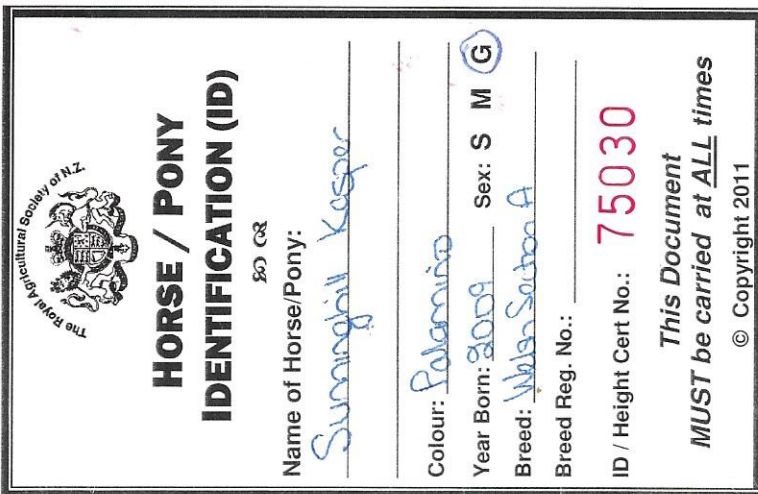 The Royal Agricultural Society of N.Z.
HORSE / PONY
IDENTIFICATION (ID)
Name of Horse/Pony:
Sunninghill Kasper
Colour: Palamino
Year Born: 2009 Sex: S M G
Breed: Welsh Section A
Breed Reg. No.:
ID / Height Cert No.: 75030
This Document
MUST be carried at ALL times
© Copyright 2011